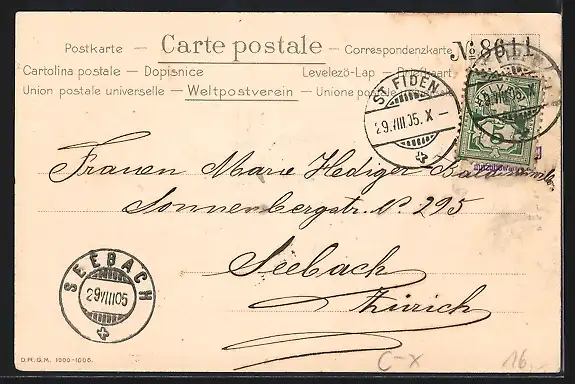 Postkarte — Carte postale — Correspondenzkarte № 8611
Cartolina postale — Dopisnice Levelezö-Lap —
Union postale universelle — Weltpostverein — Unione
ST. FIDEN
29.VIII.05.X—
5
Frauen Marie Hediger
Sonnenbergstr. N. 295
Seebach
Zürich
SEEBACH
29VIII05
D.R.G.M. 1000-1005.
C-X 16.